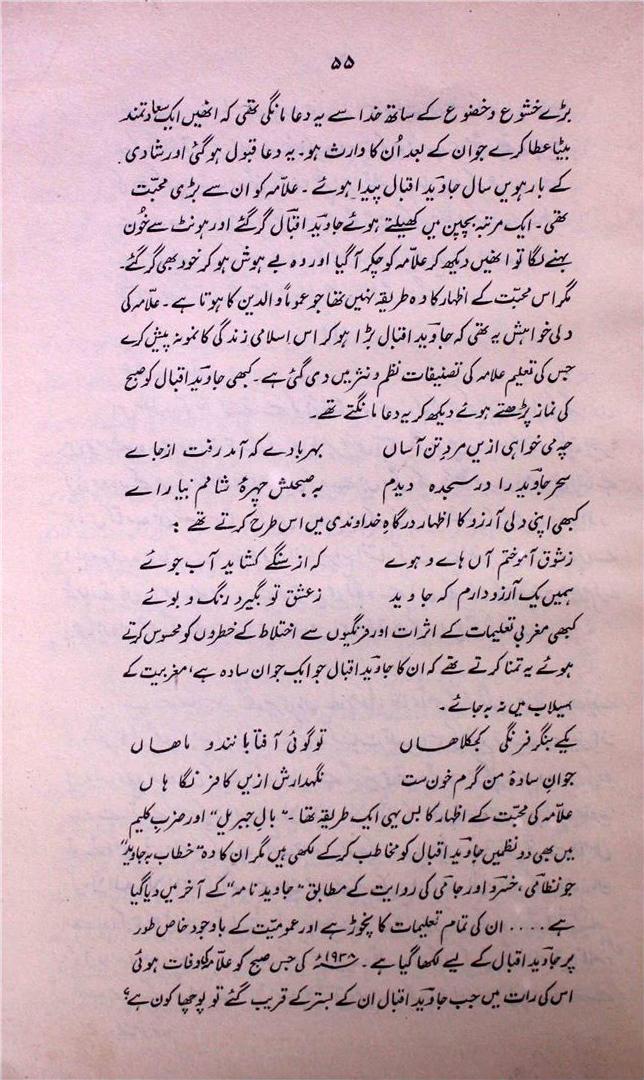 ۵۵
بڑے خشوع و خضوع کے ساتھ خدا سے یہ دعا مانگی تھی کہ انھیں ایک سعادتمند
بیٹا عطا کرے جو ان کے بعد اُن کا وارث ہو۔ یہ دعا قبول ہو گئی اور شادی
کے بارہویں سال جاوید اقبال پیدا ہوئے۔ علامہ کو ان سے بڑی محبت
تھی۔ ایک مرتبہ بچپن میں کھیلتے ہوئے جاوید اقبال گر گئے اور ہونٹ سے خُون
بہنے لگا تو انھیں دیکھ کر علامہ کو چکر آگیا اور وہ بے ہوش ہو کر خود بھی گر گئے۔
مگر اس محبت کے اظہار کا وہ طریقہ نہیں تھا جو عموماً والدین کا ہوتا ہے۔ علامہ کی
دلی خواہش یہ تھی کہ جاوید اقبال بڑا ہو کر اس اسلامی زندگی کا نمونہ پیش کرے
جس کی تعلیم علامہ کی تصنیفات نظم و نثر میں دی گئی ہے۔ کبھی جاوید اقبال کو صبح
کی نماز پڑھتے ہوئے دیکھ کر یہ دعا مانگتے تھے۔
چہ می خواہی ازیں مردِ تن آساں بہر بادے کہ آمد رفت از جاے
سحر جاوید را در سجدہ دیدم بہ صبحش چہرۂ شامم بیاراے
کبھی اپنی دلی آرزو کا اظہار درگاہِ خداوندی میں اس طرح کرتے تھے :
ز شوق آموختم آں ہاے و ہوے کہ از سنگے کشاید آب جوئے
ہمیں یک آرزو دارم کہ جاوید ز عشق تو بگیرد رنگ و بوئے
کبھی مغربی تعلیمات کے اثرات اور فرنگیوں سے اختلاط کے خطروں کو محسوس کرتے
ہوئے یہ تمنا کرتے تھے کہ ان کا جاوید اقبال جو ایک جوان سادہ ہے، مغربیت کے
سیلاب میں نہ بہ جائے۔
یکے بنگر فرنگی کجکلاھاں تو گوئی آفتابانند و ماھاں
جوان سادۂ من گرم خون ست نگہدارش ازیں کافر نگاہاں
علامہ کی محبت کے اظہار کا بس یہی ایک طریقہ تھا۔ "بالِ جبریل" اور ضربِ کلیم
میں بھی دو نظمیں جاوید اقبال کو مخاطب کر کے لکھی ہیں مگر ان کا وہ "خطاب بہ جاوید"
جو نظامی، خسرو اور جامی کی روایت کے مطابق "جاوید نامہ" کے آخر میں دیا گیا
ہے .... ان کی تمام تعلیمات کا نچوڑ ہے اور عمومیت کے باوجود خاص طور
پر جاوید اقبال کے لیے لکھا گیا ہے۔ ۱۹۳۸ء کی جس صبح کو علامہ کی وفات ہوئی
اس کی رات میں جب جاوید اقبال ان کے بستر کے قریب گئے تو پوچھا کون ہے؟